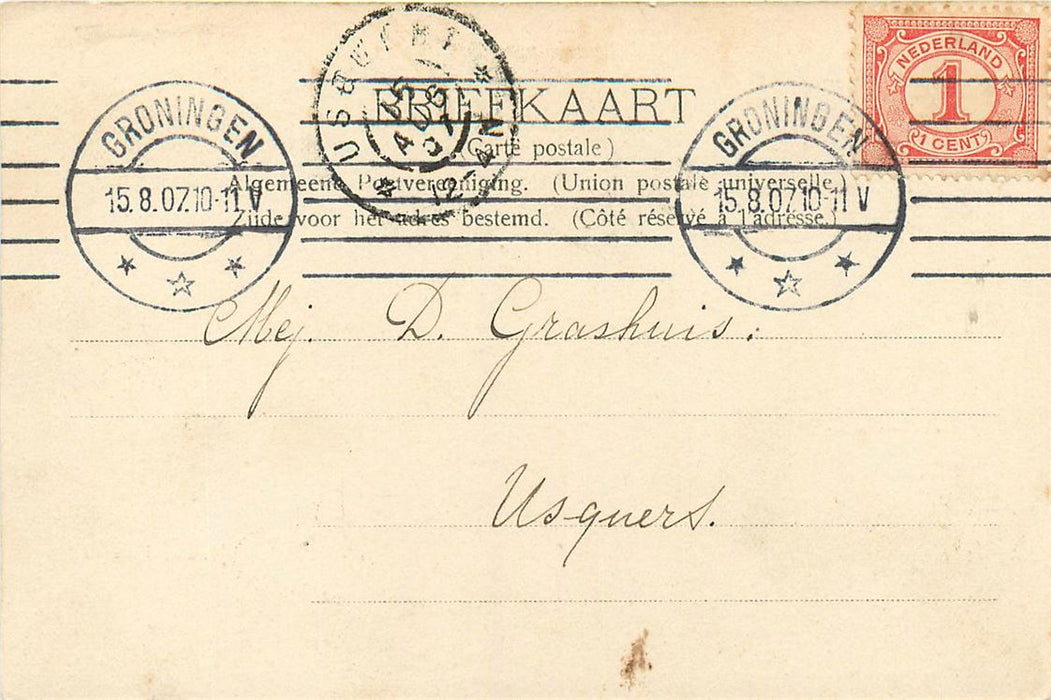 BRIEFKAART
(Carte postale)
Algemeene Postvereeniging. (Union postale universelle.)
Zijde voor het adres bestemd. (Côté réservé à l'adresse.)
GRONINGEN
15.8.07.10-11 V
USQWERT
15 AUG 07
12-4N
GRONINGEN
15.8.07.10-11 V
NEDERLAND
1
1 CENT
Mej. D. Grashuis.
Usquers.